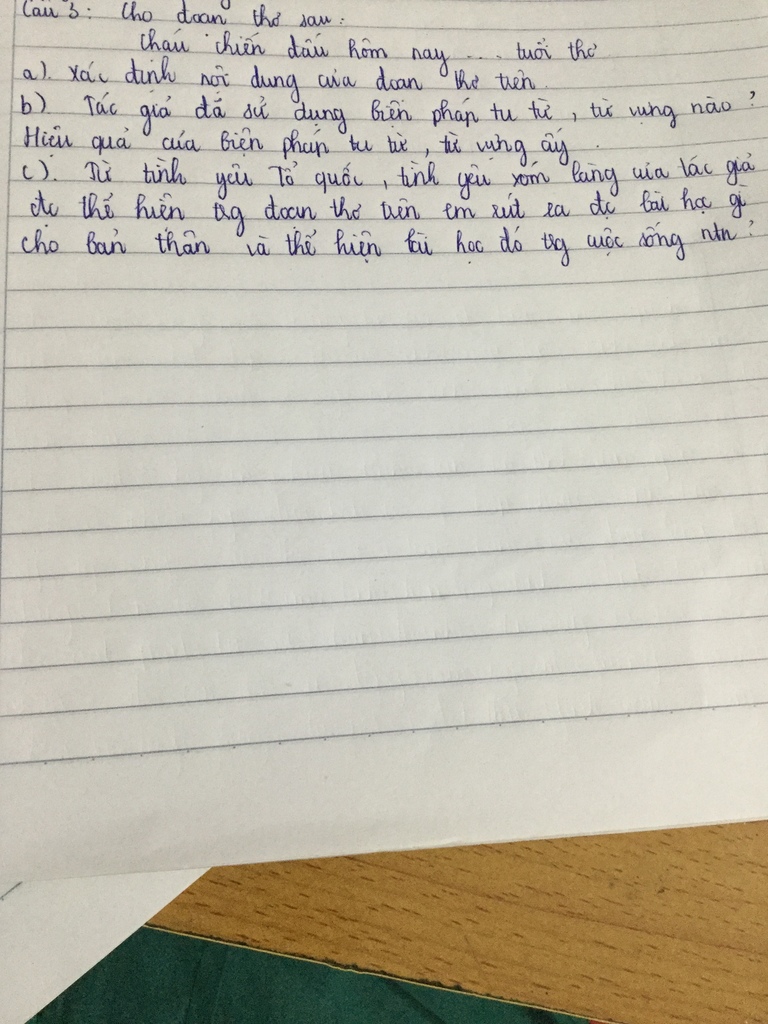 Câu 3: Cho đoạn thơ sau:
Cháu chiến đấu hôm nay .... tuổi thơ
a). Xác định nội dung của đoạn thơ trên.
b). Tác giả đã sử dụng biện pháp tu từ, từ vựng nào?
Hiệu quả của biện pháp tu từ, từ vựng ấy.
c). Từ tình yêu Tổ quốc, tình yêu xóm làng của tác giả
đc thể hiện trg đoạn thơ trên em rút ra đc bài học gì
cho bản thân và thể hiện bài học đó trg cuộc sống ntn?